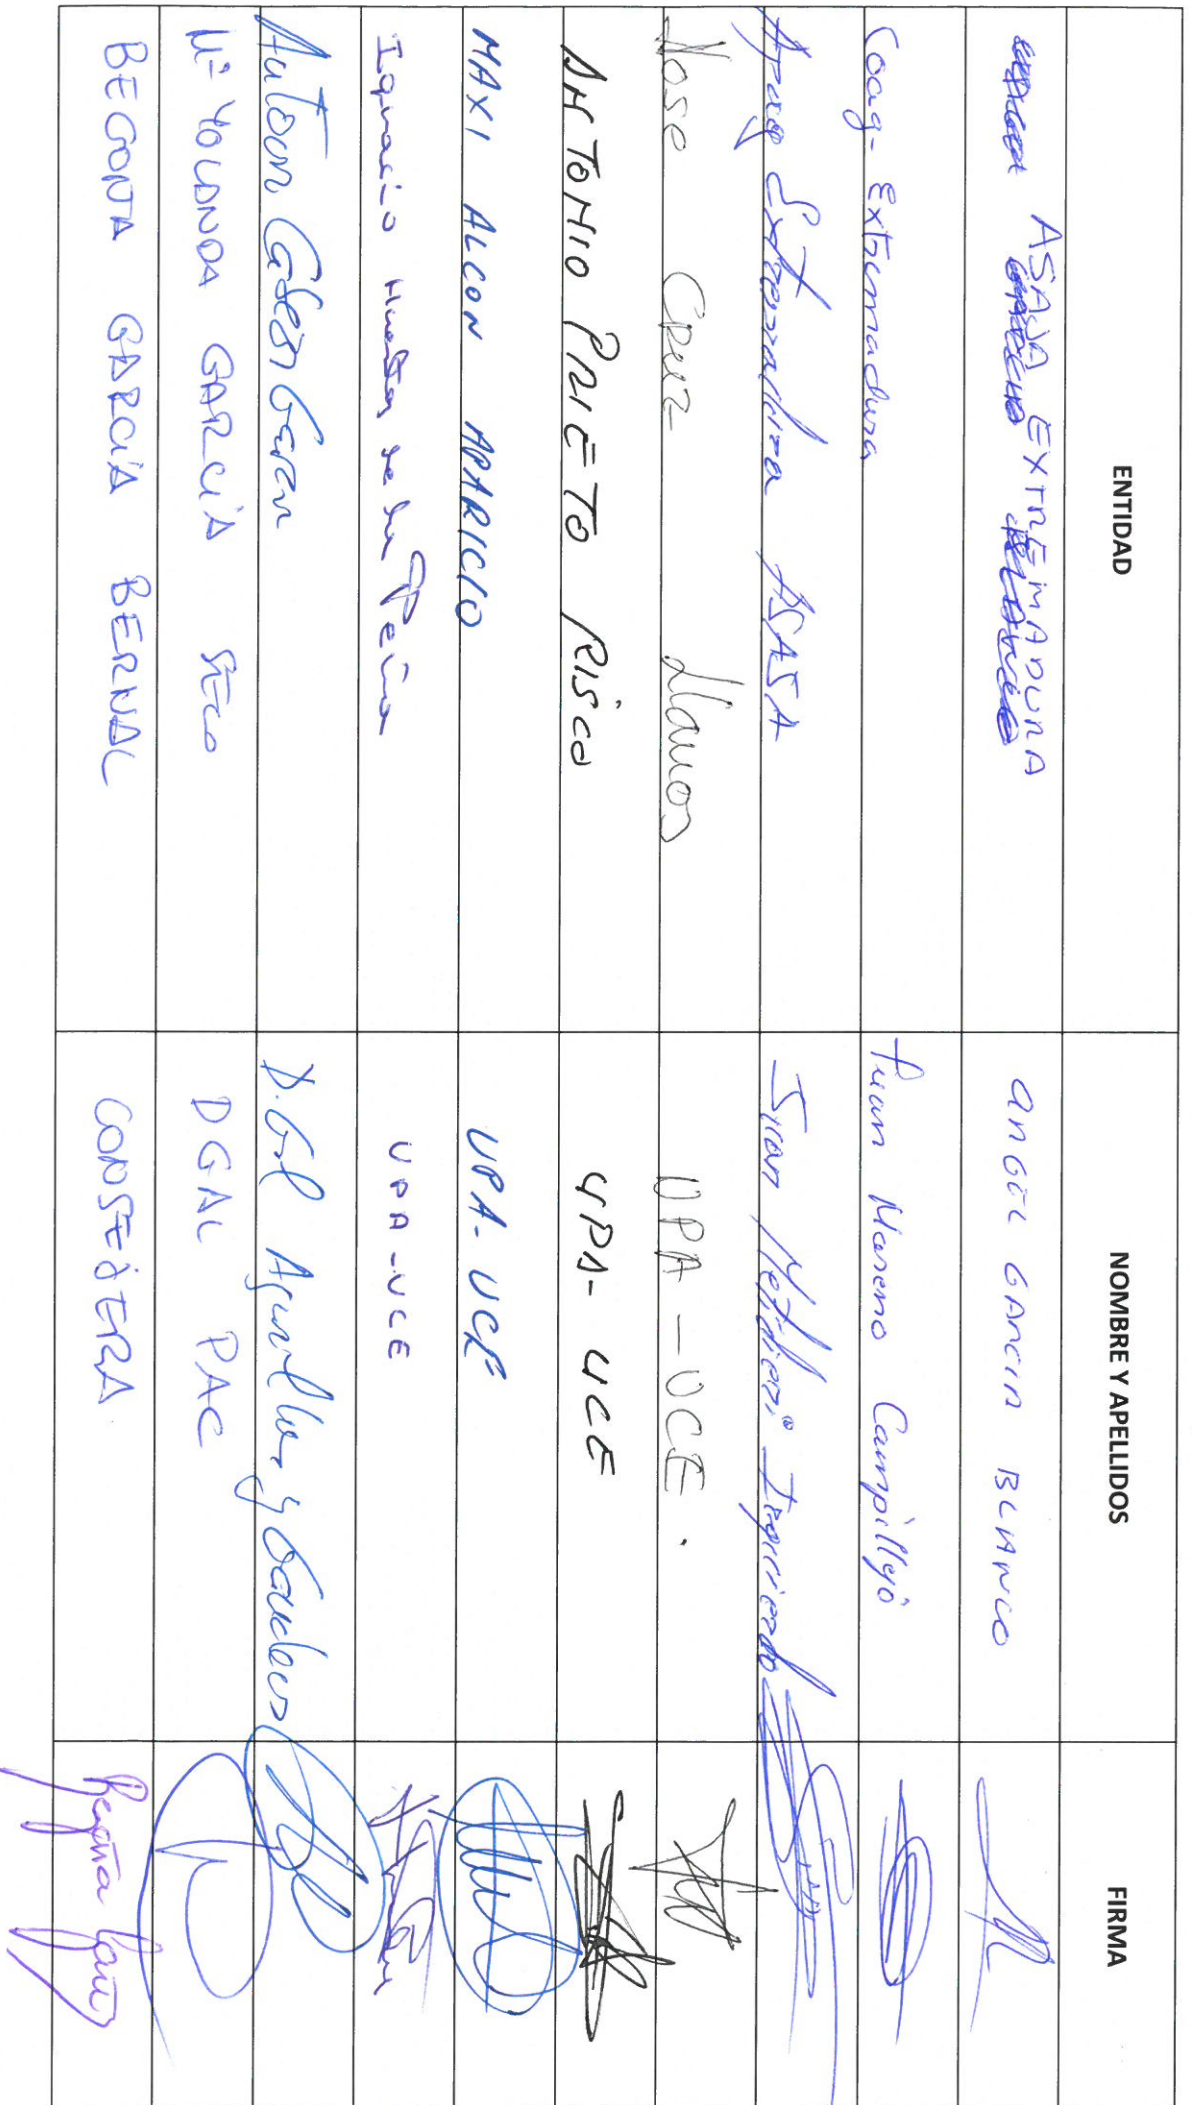 ENTIDAD NOMBRE Y APELLIDOS FIRMA
ASAJA EXTREMADURA ANGEL GARCIA BLANCO
Coag-Extremadura Juan Moreno Campillejo
Apag Extremadura ASAJA Juan Metidieri Izquierdo
Jose Cruz UPA-UCE.
ANTONIO PRIETO RISCO UPA-UCE
MAXI ALCON APARICIO UPA-UCE
Ignacio Huertas de la Peña UPA-UCE
D. Gral Agricultura y Ganaderia
Mª YOLANDA GARCIA SECO DGAL PAC
BEGOÑA GARCÍA BERNAL CONSEJERA
Begoña García